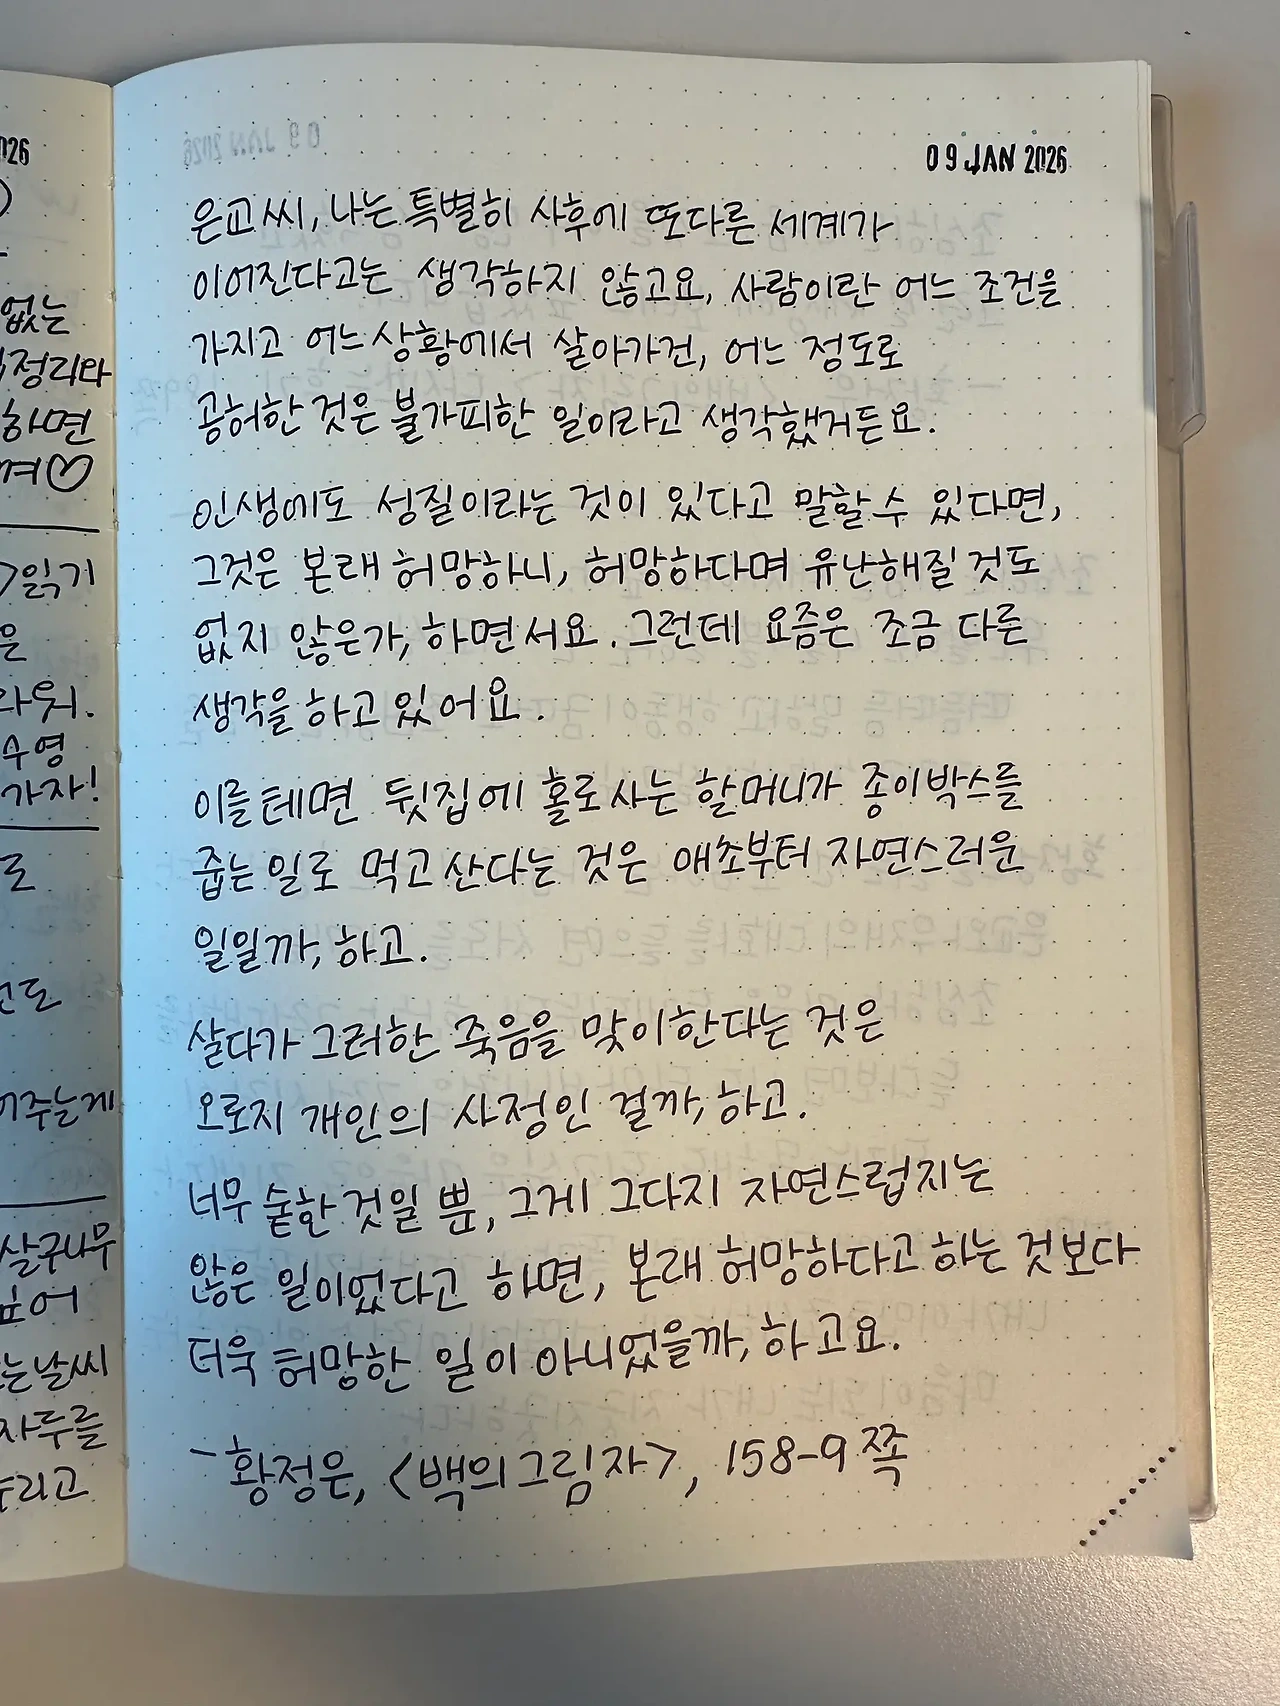 026
없는
정리와
하면
여♡
>읽기
은
와위.
수영
가자!
로
선도
어주는게
살구나무
깊어
는날씨
자두를
누리고
09 JAN 2026
은교씨, 나는 특별히 사후에 또다른 세계가
이어진다고는 생각하지 않고요, 사람이란 어느 조건을
가지고 어느 상황에서 살아가건, 어느 정도로
공허한 것은 불가피한 일이라고 생각했거든요.
인생에도 성질이라는 것이 있다고 말할 수 있다면,
그것은 본래 허망하니, 허망하다며 유난해질 것도
없지 않은가, 하면서요. 그런데 요즘은 조금 다른
생각을 하고 있어요.
이를테면 뒷집에 홀로 사는 할머니가 종이박스를
줍는 일로 먹고 산다는 것은 애초부터 자연스러운
일일까, 하고.
살다가 그러한 죽음을 맞이한다는 것은
오로지 개인의 사정인 걸까, 하고.
너무 숱한 것일 뿐, 그게 그다지 자연스럽지는
않은 일이었다고 하면, 본래 허망하다고 하는 것보다
더욱 허망한 일이 아니었을까, 하고요.
- 황정은, <백의 그림자>, 158-9쪽